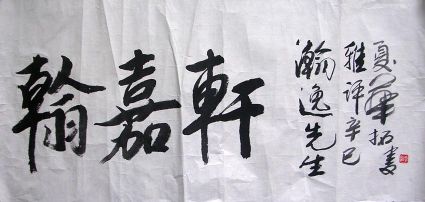 翰嘉軒
瀚逸先生
雅评辛巳
夏華拙書